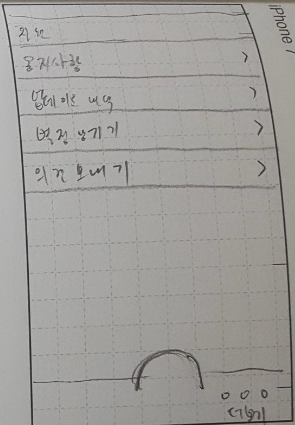 iPhone 7
지원
공지사항 >
업데이트 내역 >
별점 남기기 >
의견 보내기 >
더보기